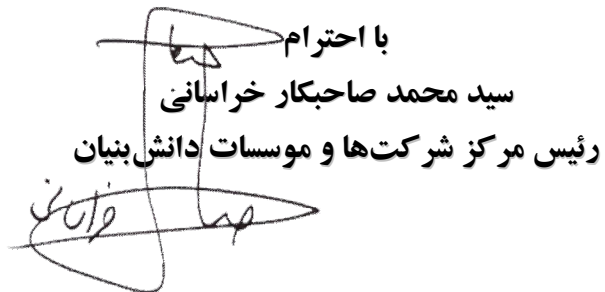 با احترام
سید محمد صاحبکار خراسانی
رئیس مرکز شرکت‌ها و موسسات دانش‌بنیان